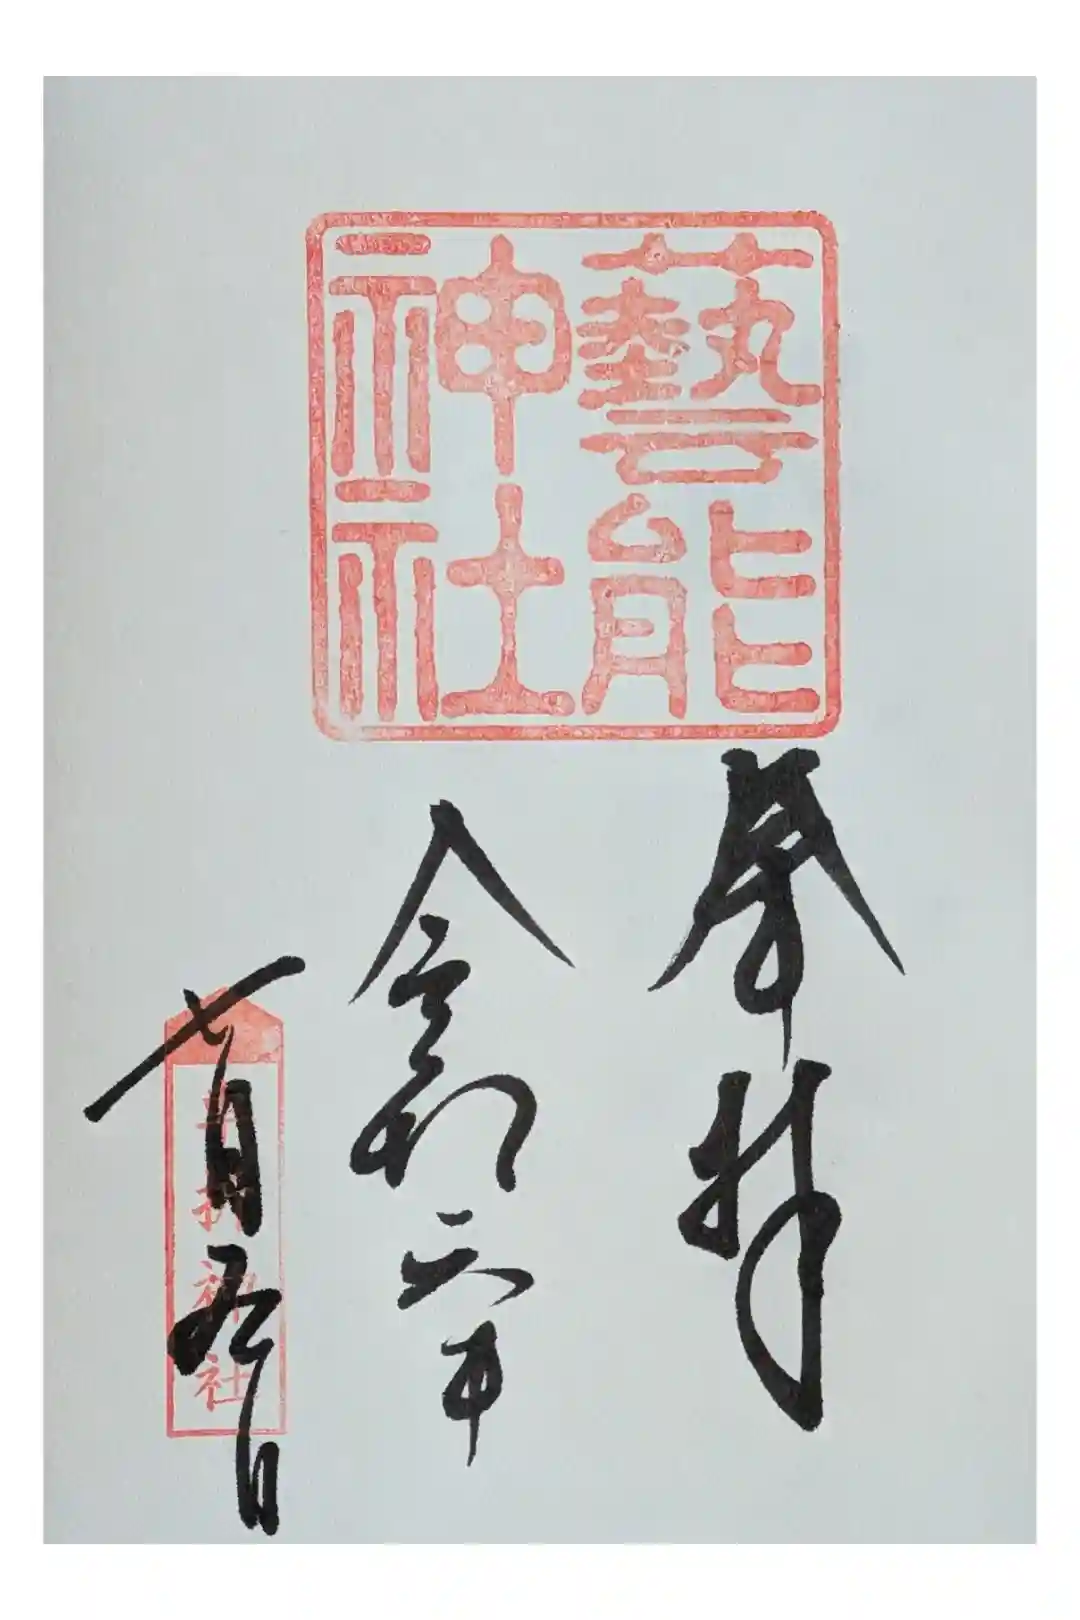 藝能
神社
奉拝
令和六年
七月五日
車折神社